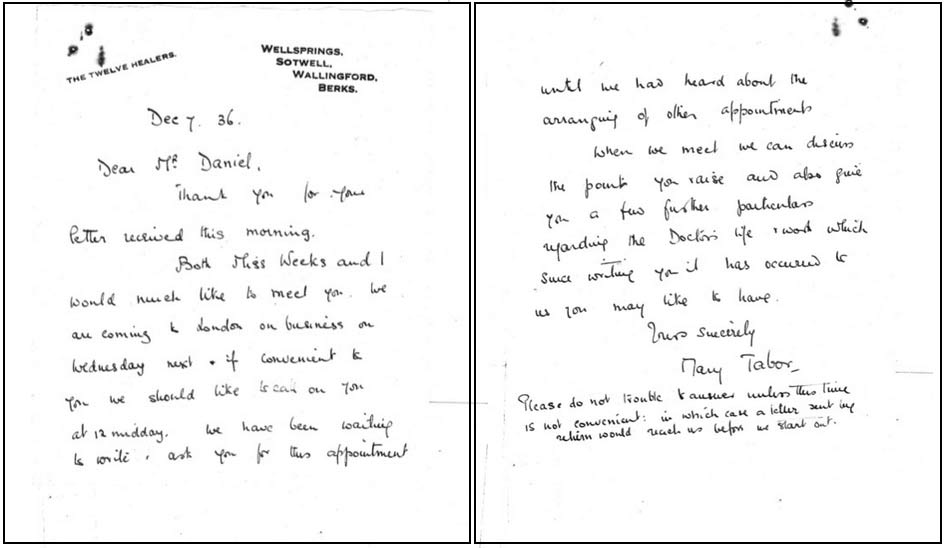 THE TWELVE HEALERS.
WELLSPRINGS,
SOTWELL,
WALLINGFORD,
BERKS.
Dec 7. 36.
Dear Mr Daniel,
Thank you for your
letter received this morning.
Both Miss Weeks and I
would much like to meet you. We
are coming to London on business on
Wednesday next & if convenient to
you we should like to call on you
at 12 midday. We have been waiting
to write & ask you for this appointment
until we had heard about the
arranging of other appointments
When we meet we can discuss
the points you raise and also give
you a few further particulars
regarding the Doctor's life & work which
since writing you it has occurred to
us you may like to have.
Yours sincerely
Mary Tabor
Please do not trouble to answer unless this time
is not convenient: in which case a letter sent by
return would reach us before we start out.